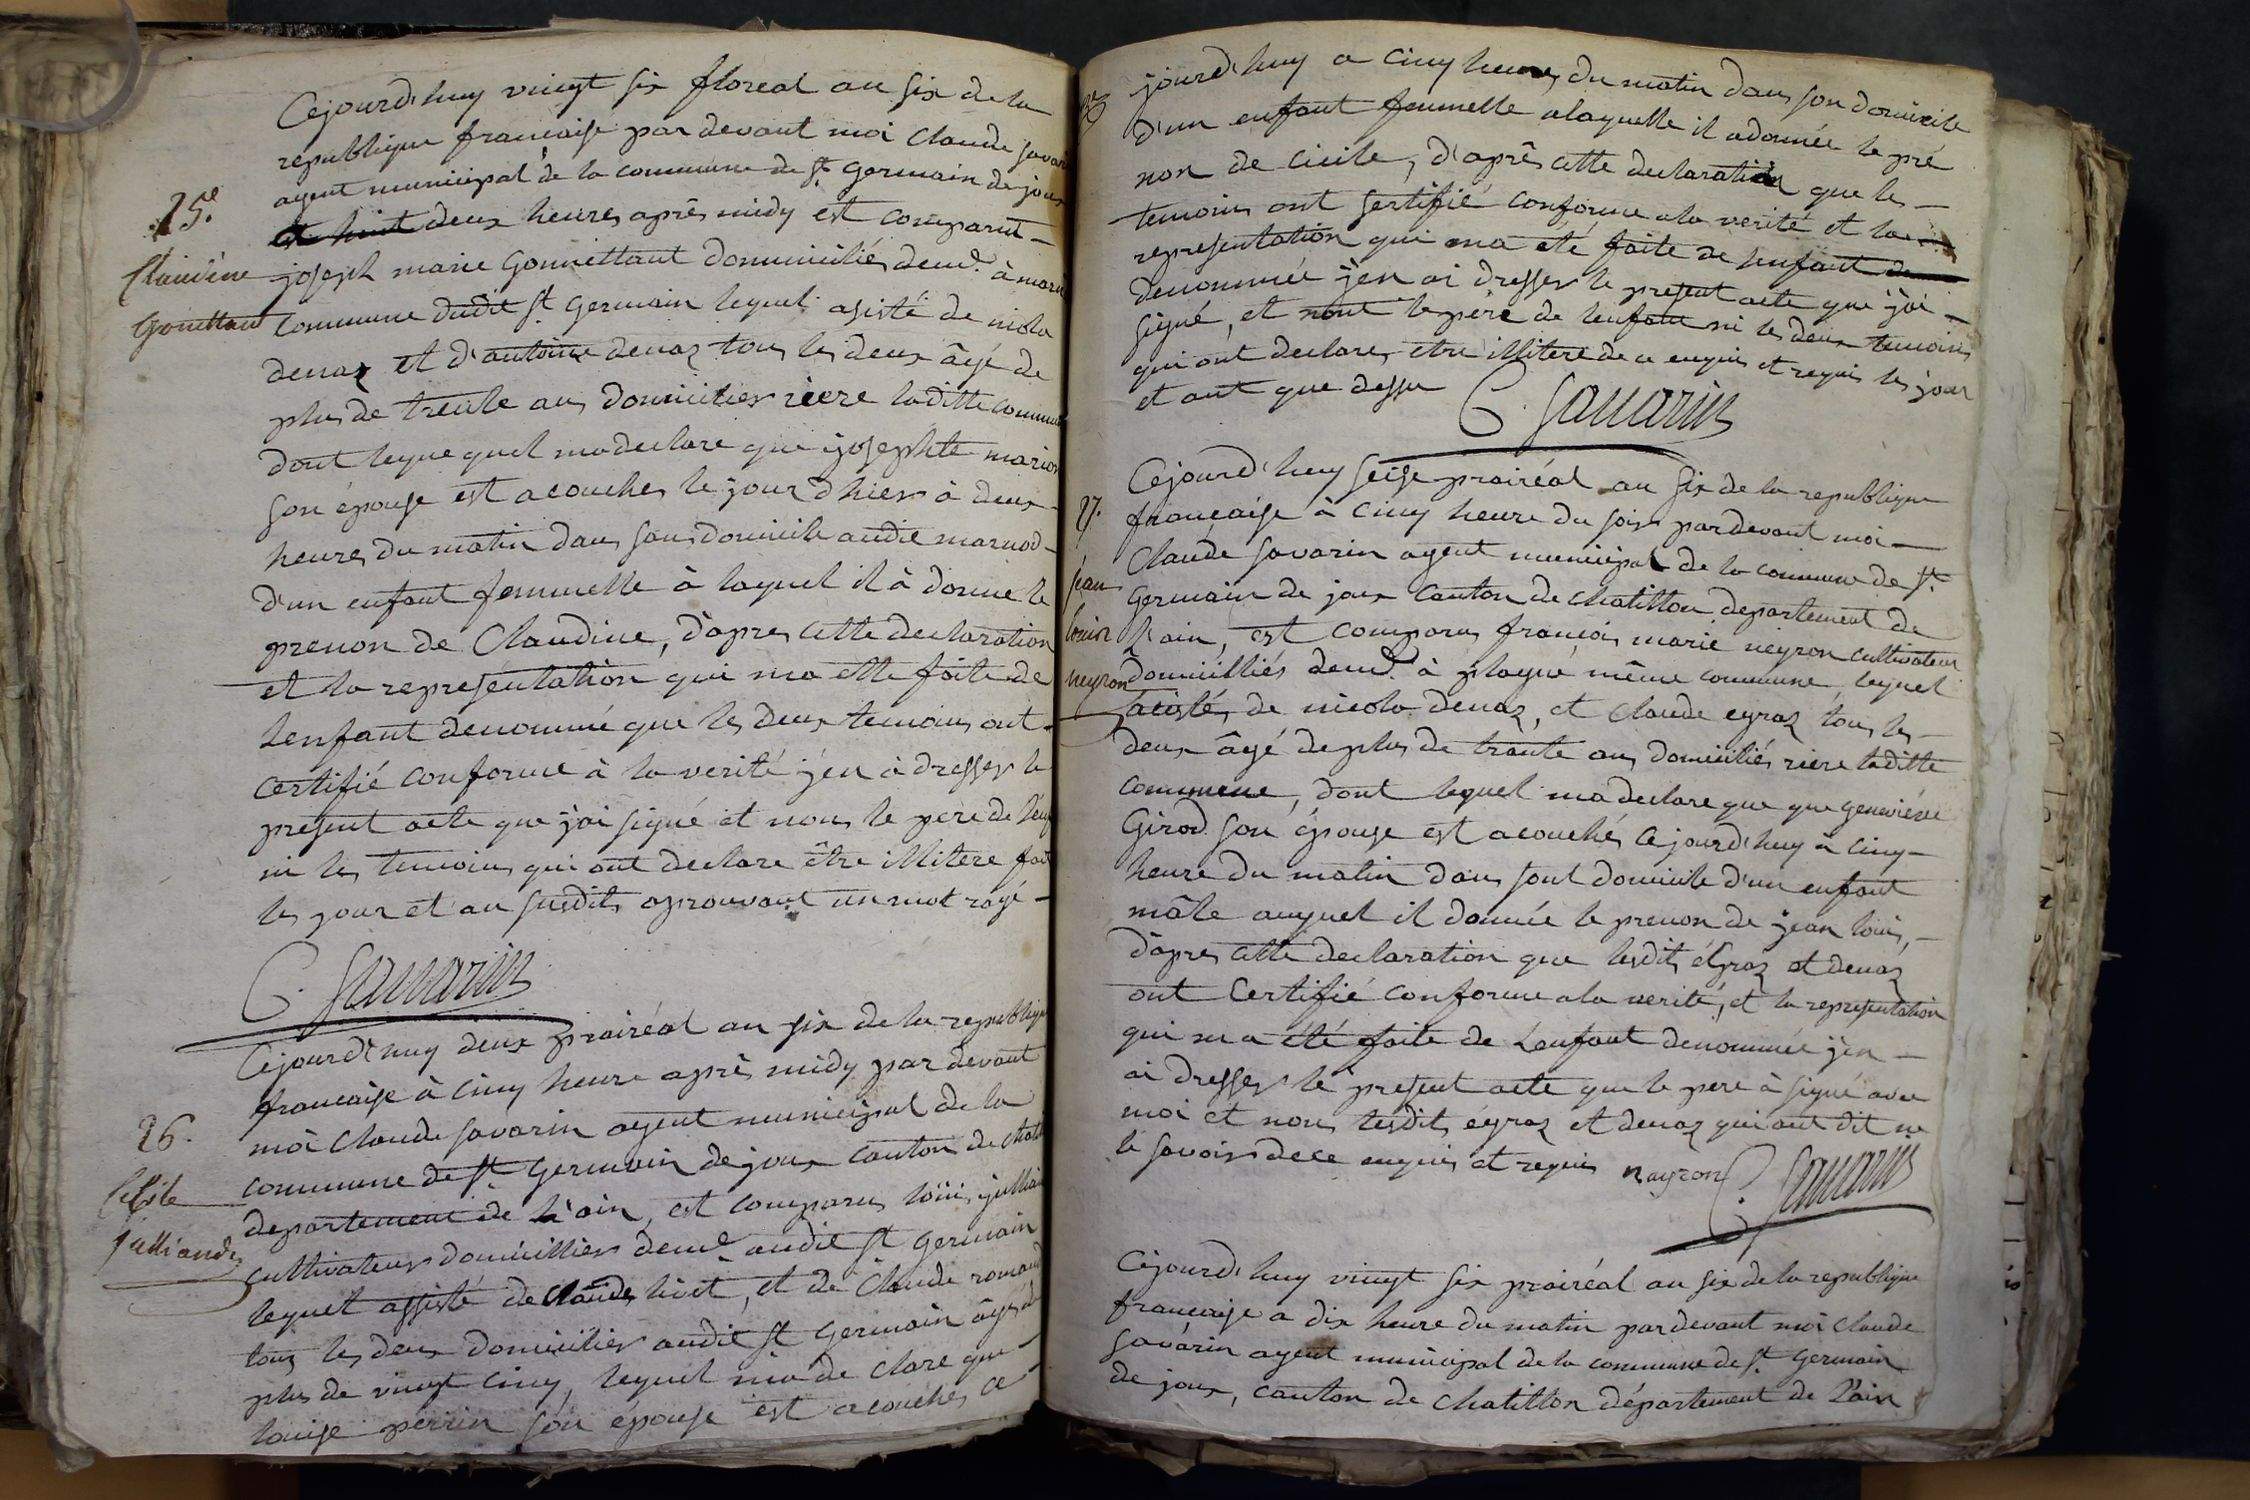 Cejourd'huy vingt six floreal an six de la
republique française par devant moi Claude savari
agent municipal de la commune de St germain de joux
25e
deux heures après midy est comparut
Claudine
joseph marie Gonnettant domiciliés demt à marn
Gonettant
Commune dudit St germain lequel asisté de nicola
denaz et d'antoine denaz tous les deux âgé de
plus de trente ans domicilier riere laditte commune
dont leque quel ma declare que josephte marion
son épouse est acoucher le jour d'hier à deux
heures du matin dans son domicile audit marnod
d'un enfant femmelle à laquel il à donné le
prenon de Claudine, d'apres cette declaration
et la représentation qui ma ette faite de
lenfant denommé que les deux temoins ont
certifié conforme à la verité j'en à dresser le
present acte que j'ai signé et non le père de l'enf
ni les temoins qui ont declare être illitere fait
les jour et an susdits aprouvant un mot rayé
C. Savarin
Cejourd'huy deux prairéal an six de la republique
française à cinq heure après midy par devant
moi Claude savarin agent municipal de la
26.
commune de St germain de joux canton de chati
Cicile
departement de l'ain, est comparu loüis julliand
julliand
cultivateur domicillier demt audit St germain
lequel assisté de Claude et de Claude romand
tous les deux domicilier audit St germain âgé de
plus de vingt cinq, lequel ma de clare que
louise perrin son épouse est acoucher ce
jourd'huy a cinq heures du matin dans son domicile
d'un enfant femmelle alaquelle il adonnée le pré
non de Cicile, d'après cette declaration que les
temoins ont sertifié conforme ala verité et la
representation qui ma eté faite de lenfant
denommée j'en ai dresser le present acte que j'ai
signé, et nont le père de lenfant ni les deux temoins
qui ont declarer etre illitere de ce enquis et requis les jour
et ant que dessu C. Savarin
Cejourd'huy seise prairéal an six de la republique
27.
française à cinq heure du soir pardevant moi
Claude savarin agent municipal de la commune de St
jean
germain de joux Canton de chatillon departement de
louis
l'ain, est comparu françois marie neyron cultivateur
neyron
domicilliés demt à plagne même commune lequel
acisté de nicola denaz, et Claude egraz tous les
deux âgé de plus de trante ans domiciliés riere laditte
commune, dont lequel ma declare que que geneviéve
Girod son épouse est acouchés Cejourd'huy a cinq
heure du matin dans sont domicile d'un enfant
mâle auquel il donnée le prenon de jean louis,
d'apres cette declaration que lesdits égraz et denaz
ont Certifié conforme ala verité, et la representation
qui ma été faite de Lenfant denommée j'en
ai dresser le present acte que le pere à signé avec
moi et non lesdits égraz et denaz qui ont dit ne
le savoir de ce enquis et requis nayron C. Savarin
Cejourd'huy vingt six prairéal an six de la republique
française a dix heure du matin pardevant moi Claude
savarin agent municipal de la commune de St germain
de joux, canton de Chatillon département de l'ain